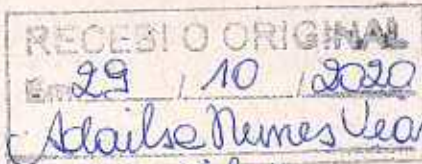 RECEBI O ORIGINAL
Em 29 / 10 / 2020
Adailsa Nunes